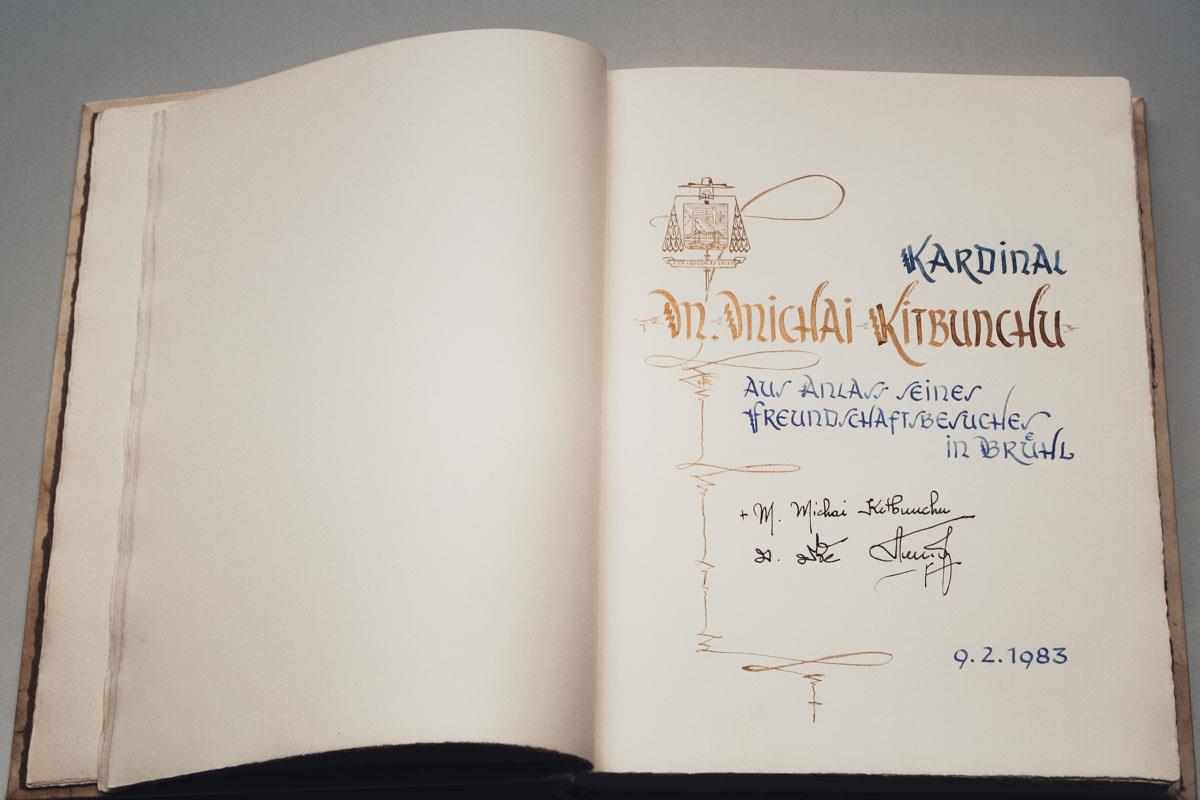 KARDINAL
M. MICHAI KITBUNCHU
AUS ANLASS SEINES
FREUNDSCHAFTSBESUCHES
IN BRÜHL
+ M. Michai Kitbunchu
9.2.1983